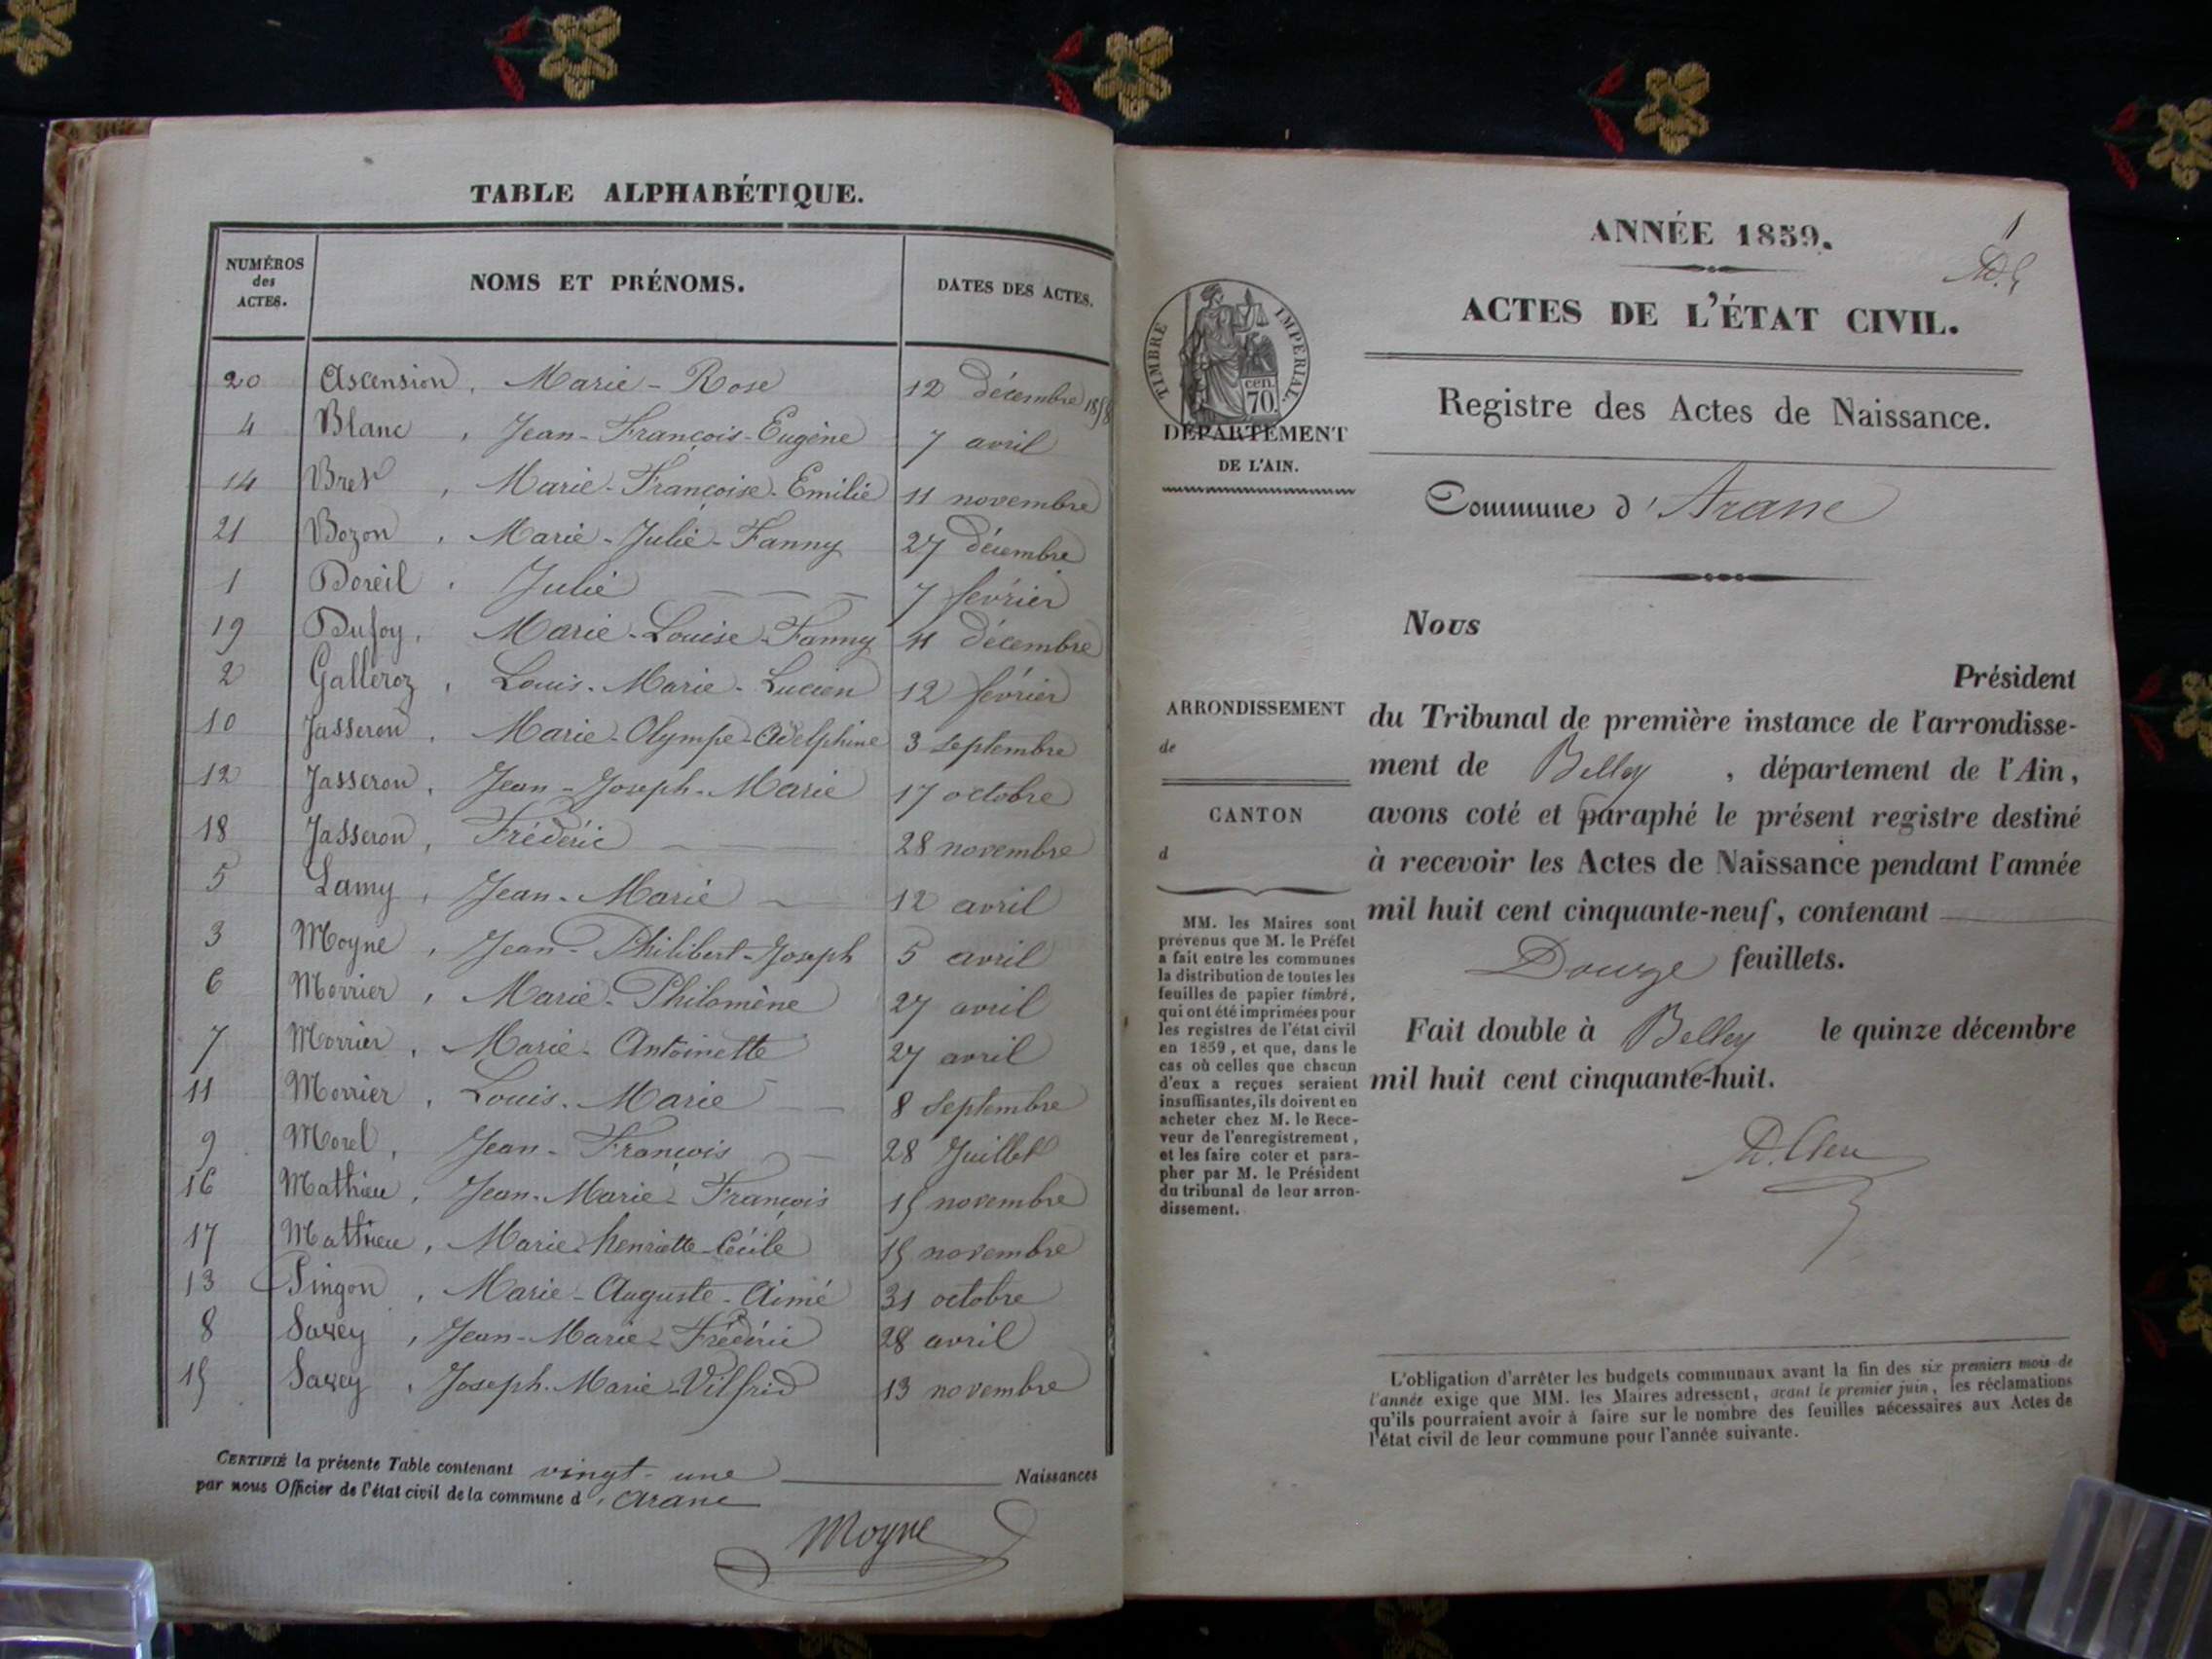 TABLE ALPHABÉTIQUE.
NUMÉROS
des
ACTES.
NOMS ET PRÉNOMS.
DATES DES ACTES.
20 Ascension, Marie-Rose 12 décembre 1858
4 Blanc, Jean-François-Eugène 7 avril
14 Bret, Marie-Françoise-Emilie 11 novembre
21 Bozon, Marie-Julie-Fanny 27 décembre
1 Doreil, Julie 7 février
19 Dufoy, Marie-Louise-Fanny 11 décembre
2 Galleroz, Louis-Marie-Lucien 12 février
10 Jasseron, Marie-Olympe-Adelphine 3 septembre
12 Jasseron, Jean-Joseph-Marie 17 octobre
18 Jasseron, Fréderic 28 novembre
5 Lamy, Jean-Marie 12 avril
3 Moyne, Jean-Philibert-Joseph 5 avril
6 Morrier, Marie-Philomène 27 avril
7 Morrier, Marie-Antoinette 27 avril
11 Morrier, Louis-Marie 8 septembre
9 Morel, Jean-François 28 Juillet
16 Mathieu, Jean-Marie-François 15 novembre
17 Mathieu, Marie henriette-Cécile 15 novembre
13 Pingon, Marie-Auguste-Aimé 31 octobre
8 Savey, Jean-Marie-Fréderic 28 avril
15 Savey, Joseph-Marie-Vilfrid 13 novembre
CERTIFIÉ la présente Table contenant vingt-une Naissances
par nous Officier de l'état civil de la commune d'Arane
Moyne
1
ANNÉE 1859.
ACTES DE L'ÉTAT CIVIL.
TIMBRE IMPERIAL.
cen.
70
Registre des Actes de Naissance.
DÉPARTEMENT
DE L'AIN.
Commune d'Arane
Nous
Président
ARRONDISSEMENT
de
CANTON
d
du Tribunal de première instance de l'arrondisse-
ment de Belley, département de l'Ain,
avons coté et paraphé le présent registre destiné
à recevoir les Actes de Naissance pendant l'année
mil huit cent cinquante-neuf, contenant
Douze feuillets.
Fait double à Belley le quinze décembre
mil huit cent cinquante-huit.
MM. les Maires sont
prévenus que M. le Préfet
a fait entre les communes
la distribution de toutes les
feuilles de papier timbré,
qui ont été imprimées pour
les registres de l'état civil
en 1859, et que, dans le
cas où celles que chacun
d'eux a reçues seraient
insuffisantes, ils doivent en
acheter chez M. le Rece-
veur de l'enregistrement,
et les faire coter et para-
pher par M. le Président
du tribunal de leur arron-
dissement.
L'obligation d'arrêter les budgets communaux avant la fin des six premiers mois de
l'année exige que MM. les Maires adressent, avant le premier juin, les réclamations
qu'ils pourraient avoir à faire sur le nombre des feuilles nécessaires aux Actes de
l'état civil de leur commune pour l'année suivante.